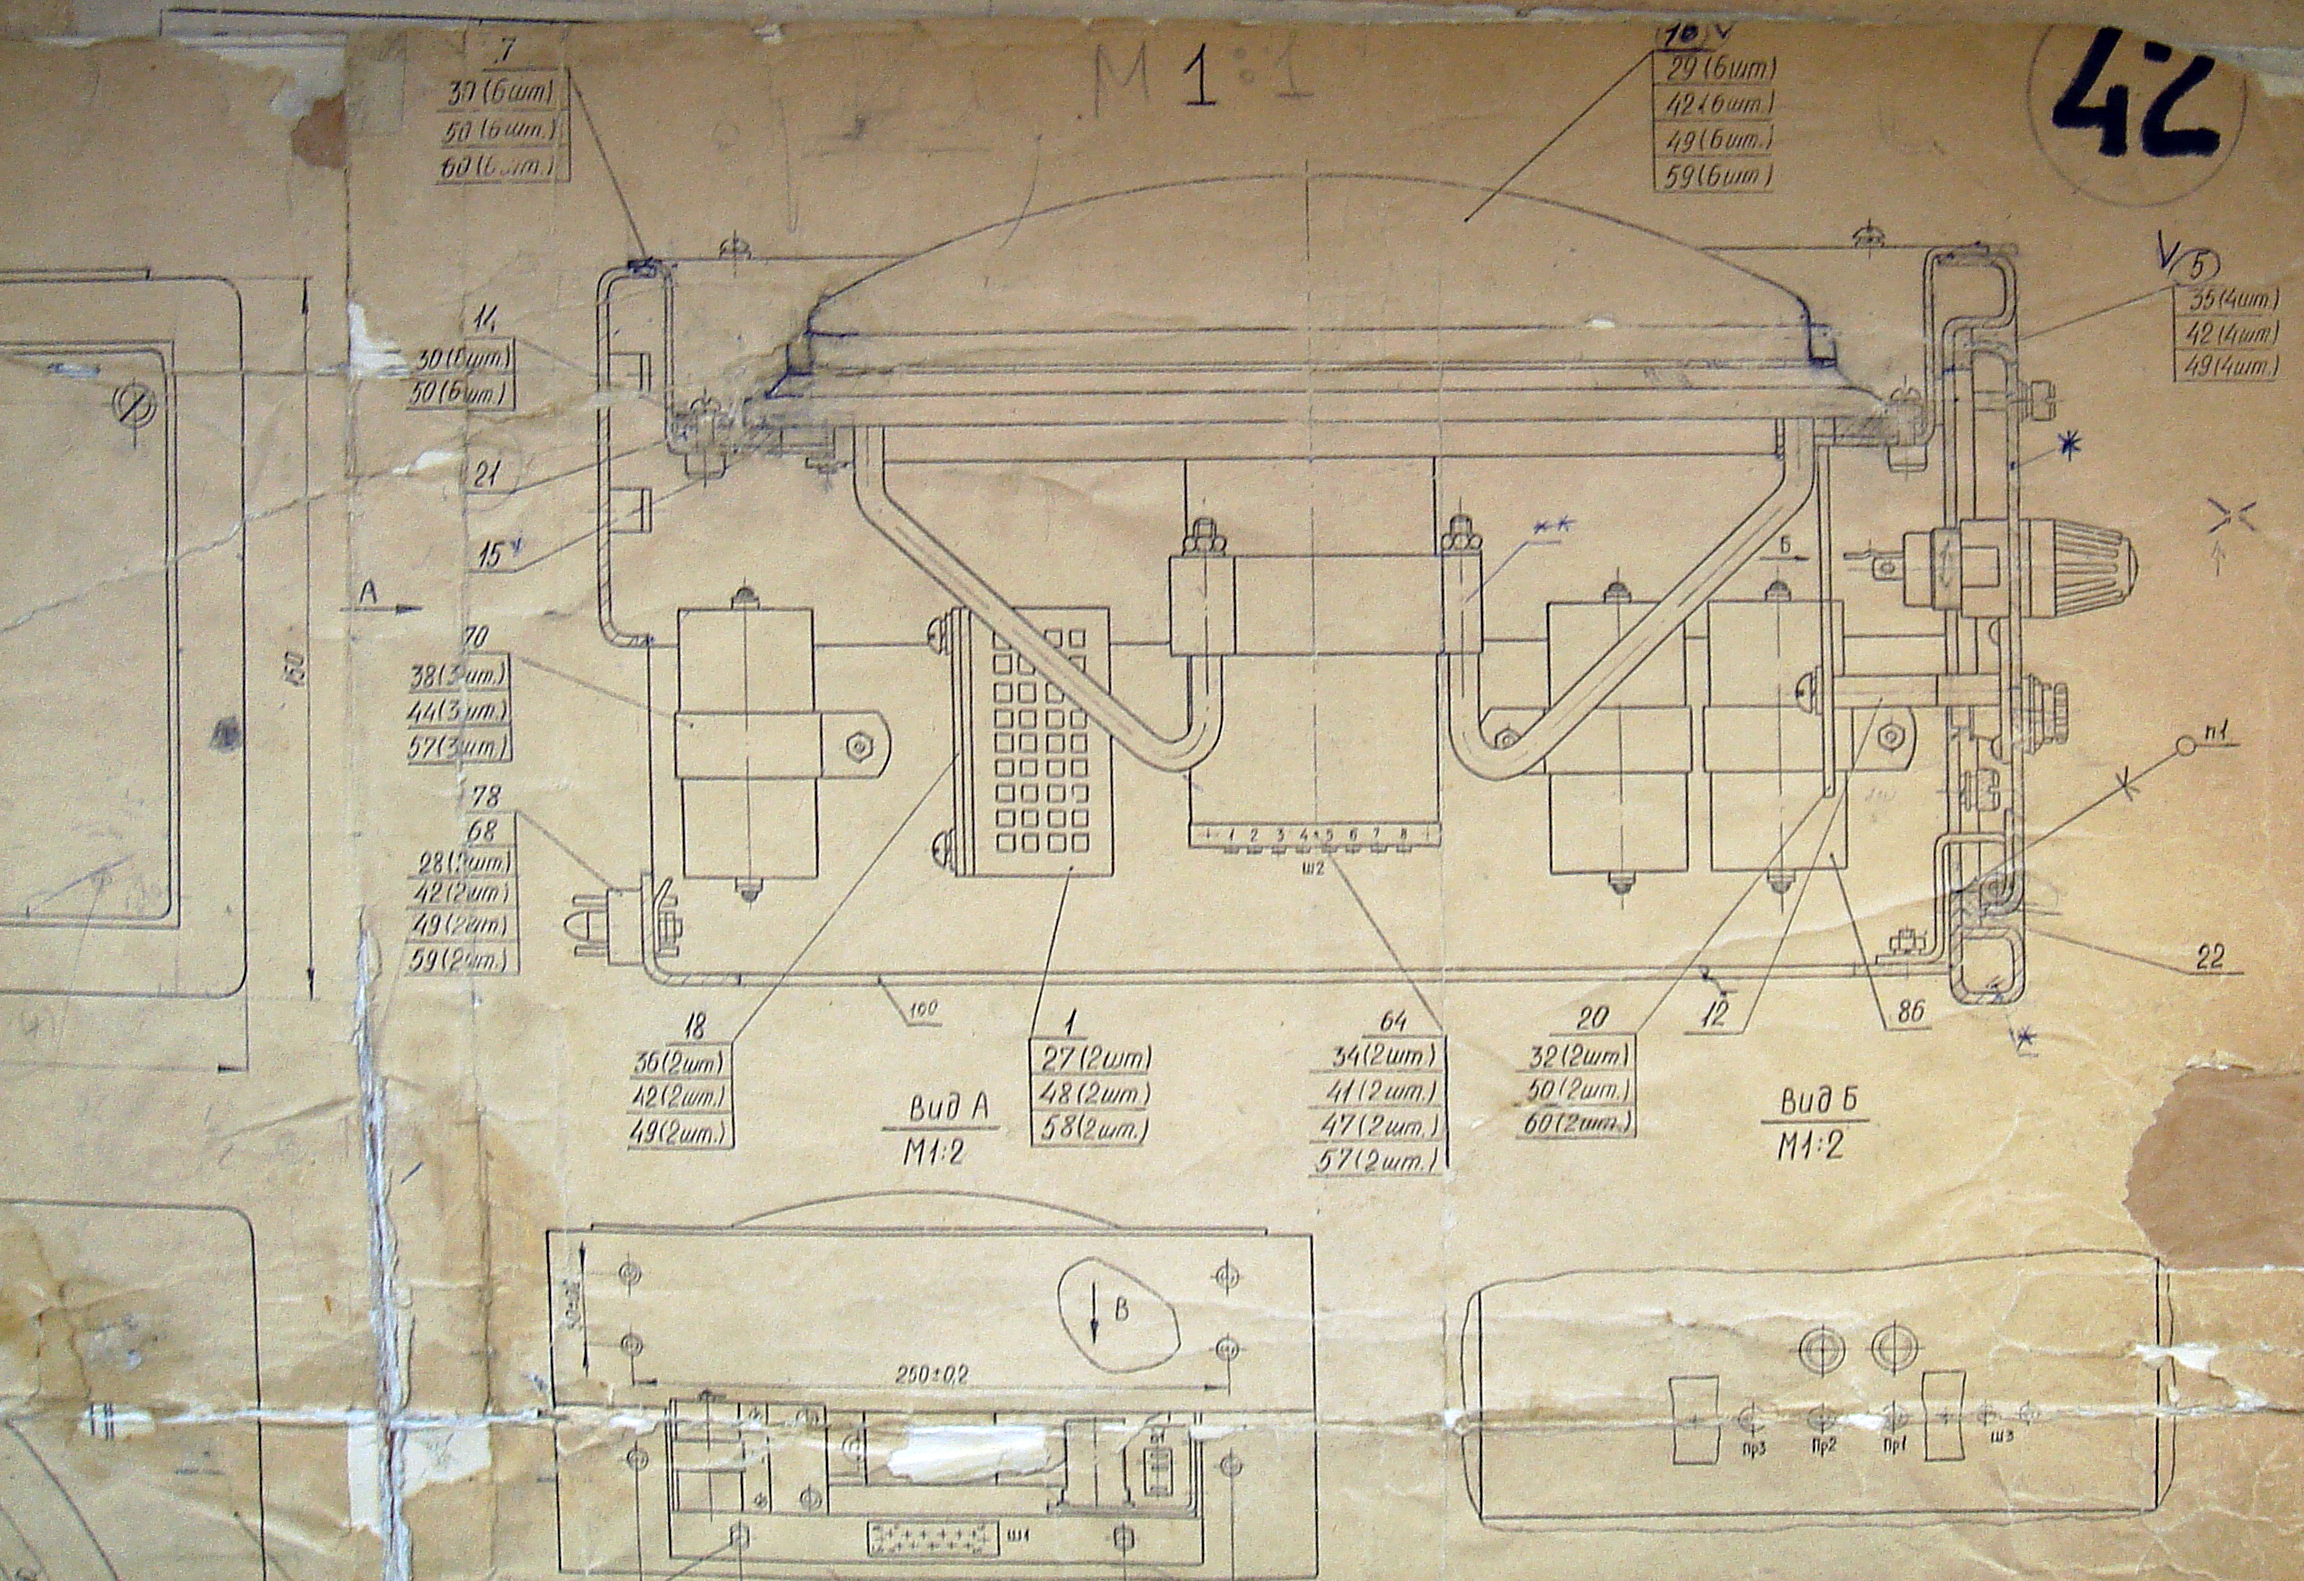 7
30(6шт)
50(6шт.)
60(6шт.)
М 1:1
10 V
29(6шт)
42(6шт.)
49(6шт.)
59(6шт)
42
V 5
35(4шт.)
42(4шт)
49(4шт.)
14
30(6шт)
50(6шт)
21
15 v
А
150
Б
*
**
70
38(3шт.)
44(3шт.)
57(3шт.)
78
68
28(2шт)
42(2шт)
49(2шт)
59(2шт.)
1 2 3 4 5 6 7 8
Ш2
п1
22
*
100
18
36(2шт)
42(2шт.)
49(2шт.)
1
27(2шт)
48(2шт.)
58(2шт.)
64
34(2шт.)
41(2шт.)
47(2шт.)
57(2шт.)
20
32(2шт)
50(2шт.)
60(2шт.)
12
86
Вид А
М1:2
Вид Б
М1:2
В
250±0,2
Ш1
Пр3 Пр2 Пр1 Ш3